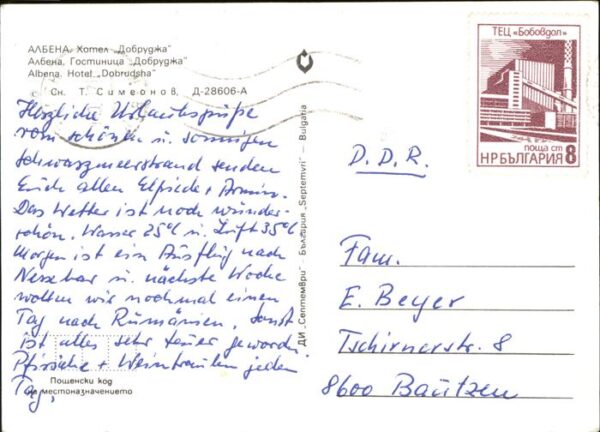 АЛБЕНА. Хотел „Добруджа"
Албена. Гостиница „Добруджа"
Albena. Hotel „Dobrudsha"
Сн. Т. Симеонов, Д-28606-А
Herzliche Urlaubsgrüße
vom schönen u. sonnigen
Schwarzmeerstrand senden
Euch allen Elfriede + Armin.
Das Wetter ist noch wunder-
schön. Wasser 25°C u. Luft 35°C
Morgen ist ein Ausflug nach
Nessebar u. nächste Woche
wollen wir nochmal einen
Tag nach Rumänien. Sonst
ist alles sehr teuer geworden.
Pfirsiche + Weintrauben jeden
Tag,
Пощенски код
на местоназначението
ДИ „Септември" — България „Septemvri" — Bulgaria
ТЕЦ «Бобовдол»
поща ст
НР БЪЛГАРИЯ 8
D.D.R.
Fam.
E. Beyer
Tschirnerstr. 8
8600 Bautzen